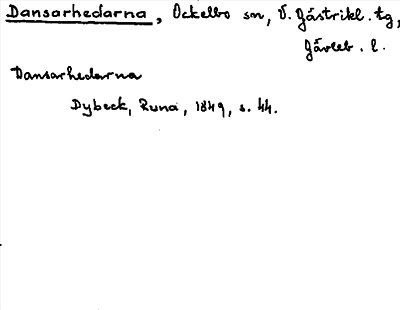 Dansarhedarna, Ockelbo sn, V. Gästrikl. tg,
Gävleb. l.
Dansarhedarna
Dybeck, Runa, 1849, s. 44.